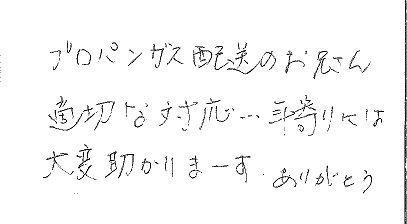 プロパンガス配送のお兄さん
適切な対応…年寄りには
大変助かりまーす ありがとう